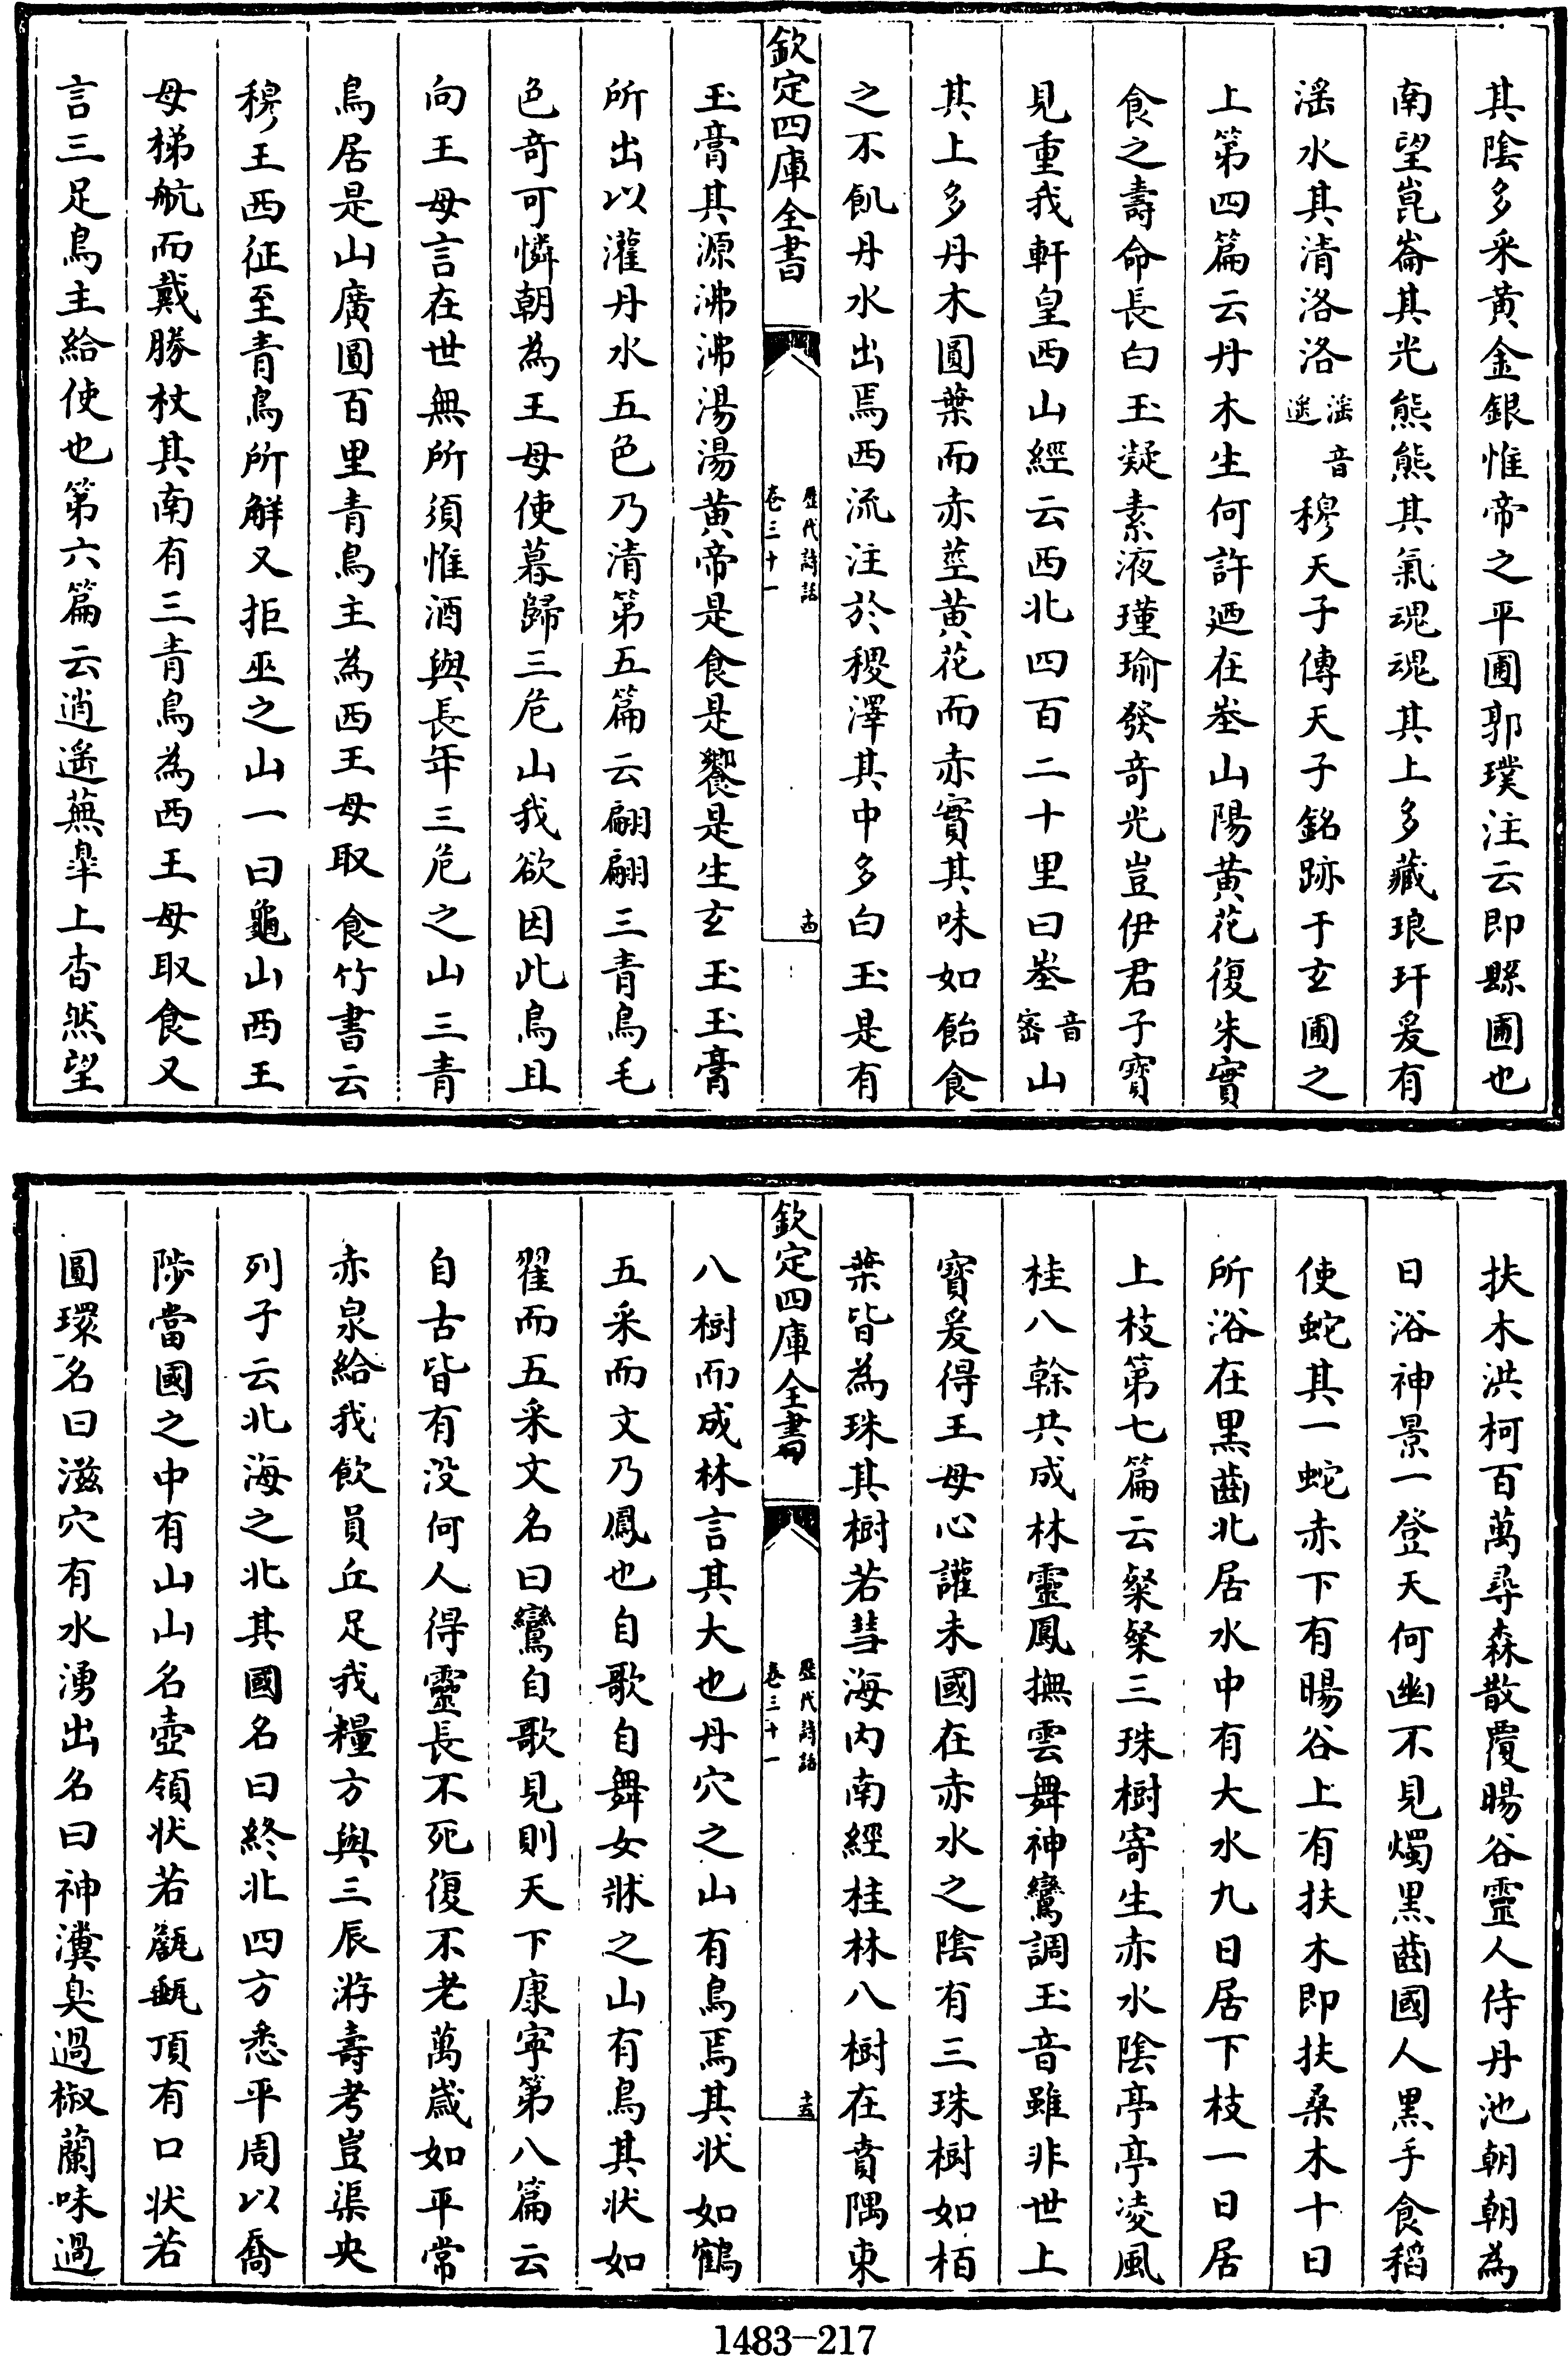 其陰多采黄金銀惟帝之平圃郭璞注云即縣圃也
南望崑崙其光熊熊其氣魂魂其上多藏琅玕爰有
滛水其清洛洛滛音遥穆天子傳天子銘跡于玄圃之
上第四篇云丹木生何許廼在峚山陽黄花復朱實
食之壽命長白玉凝素液瑾瑜發奇光豈伊君子寳
見重我軒皇西山經云西北四百二十里曰峚音宻山
其上多丹木圓葉而赤莖黄花而赤實其味如飴食
之不飢丹水出焉西流注於稷澤其中多白玉是有
欽定四庫全書
歴代詩話
卷三十一
十四
玉膏其源沸沸湯湯黄帝是食是饗是生玄玉玉膏
所出以灌丹水五色乃清第五篇云翩翩三青鳥毛
色奇可憐朝為王母使暮歸三危山我欲因此鳥且
向王母言在世無所須惟酒與長年三危之山三青
鳥居是山廣圓百里青鳥主為西王母取食竹書云
穆王西征至青鳥所解又拒巫之山一曰龜山西王
母梯航而戴勝杖其南有三青鳥為西王母取食又
言三足鳥主給使也第六篇云逍遥蕪臯上杳然望
扶木洪柯百萬尋森散覆暘谷靈人侍丹池朝朝為
日浴神景一登天何幽不見燭黒齒國人黒手食稻
使蛇其一蛇赤下有暘谷上有扶木即扶桑木十日
所浴在黒齒北居水中有大水九日居下枝一日居
上枝第七篇云粲粲三珠樹寄生赤水陰亭亭凌風
桂八幹共成林靈鳳撫雲舞神鸞調玉音雖非世上
寳爰得王母心讙未國在赤水之隂有三珠樹如栢
葉皆為珠其樹若彗海内南經桂林八樹在賁隅東
欽定四庫全書
歴代詩話
卷三十一
十五
八樹而成林言其大也丹穴之山有鳥焉其状如鶴
五采而文乃鳳也自歌自舞女牀之山有鳥其状如
翟而五采文名曰鸞自歌見則天下康寜第八篇云
自古皆有没何人得靈長不死復不老萬歳如平常
赤泉給我飲員丘足我糧方與三辰游壽考豈渠央
列子云北海之北其國名曰終北四方悉平周以喬
陟當國之中有山山名壺領状若甔甀頂有口状若
圓環名曰滋穴有水湧出名曰神瀵臭過椒蘭味過
1483-217